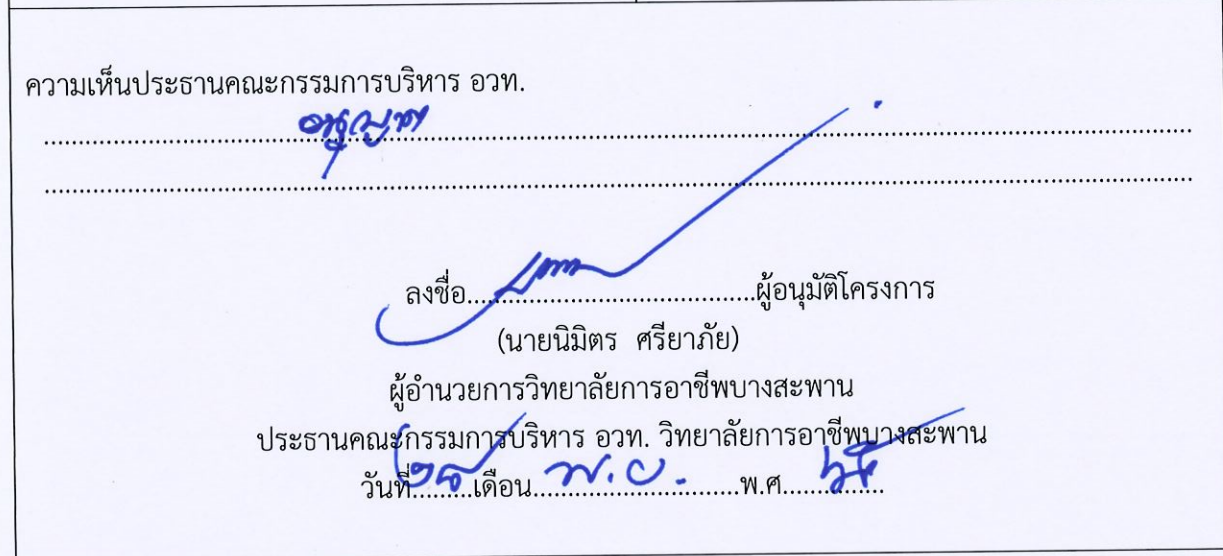 ความเห็นประธานคณะกรรมการบริหาร อวท.
อนุญาต
ลงชื่อ..........ผู้อนุมัติโครงการ
(นายนิมิตร ศรียาภัย)
ผู้อำนวยการวิทยาลัยการอาชีพบางสะพาน
ประธานคณะกรรมการบริหาร อวท. วิทยาลัยการอาชีพบางสะพาน
วันที่..........เดือน พ.ย. พ.ศ...........